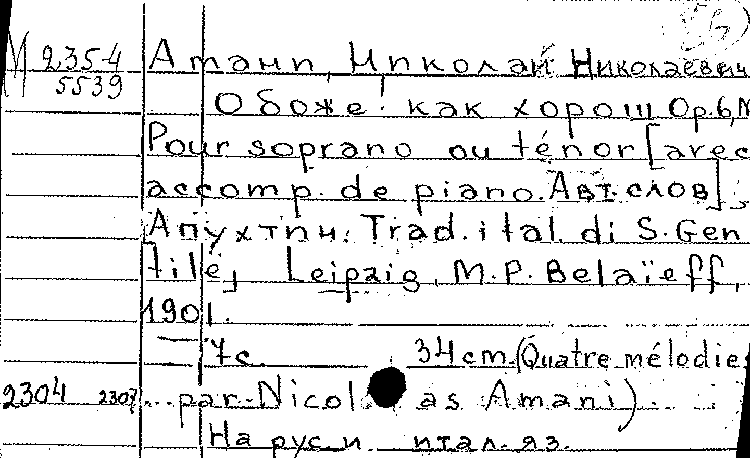 М 2354 Амани, Николай Николаевич
5539
О боже! как хорош Op. 6, N
Pour soprano ou ténor [avec
accomp. de piano. Авт. слов]
Апухтин. Trad. ital. di S. Gen
tile, Leipzig, M. P. Belaïeff,
1901.
7 c. 34 cm. (Quatre mélodies
2304 2307 ... par Nicolas Amani).
На рус. и итал. яз.